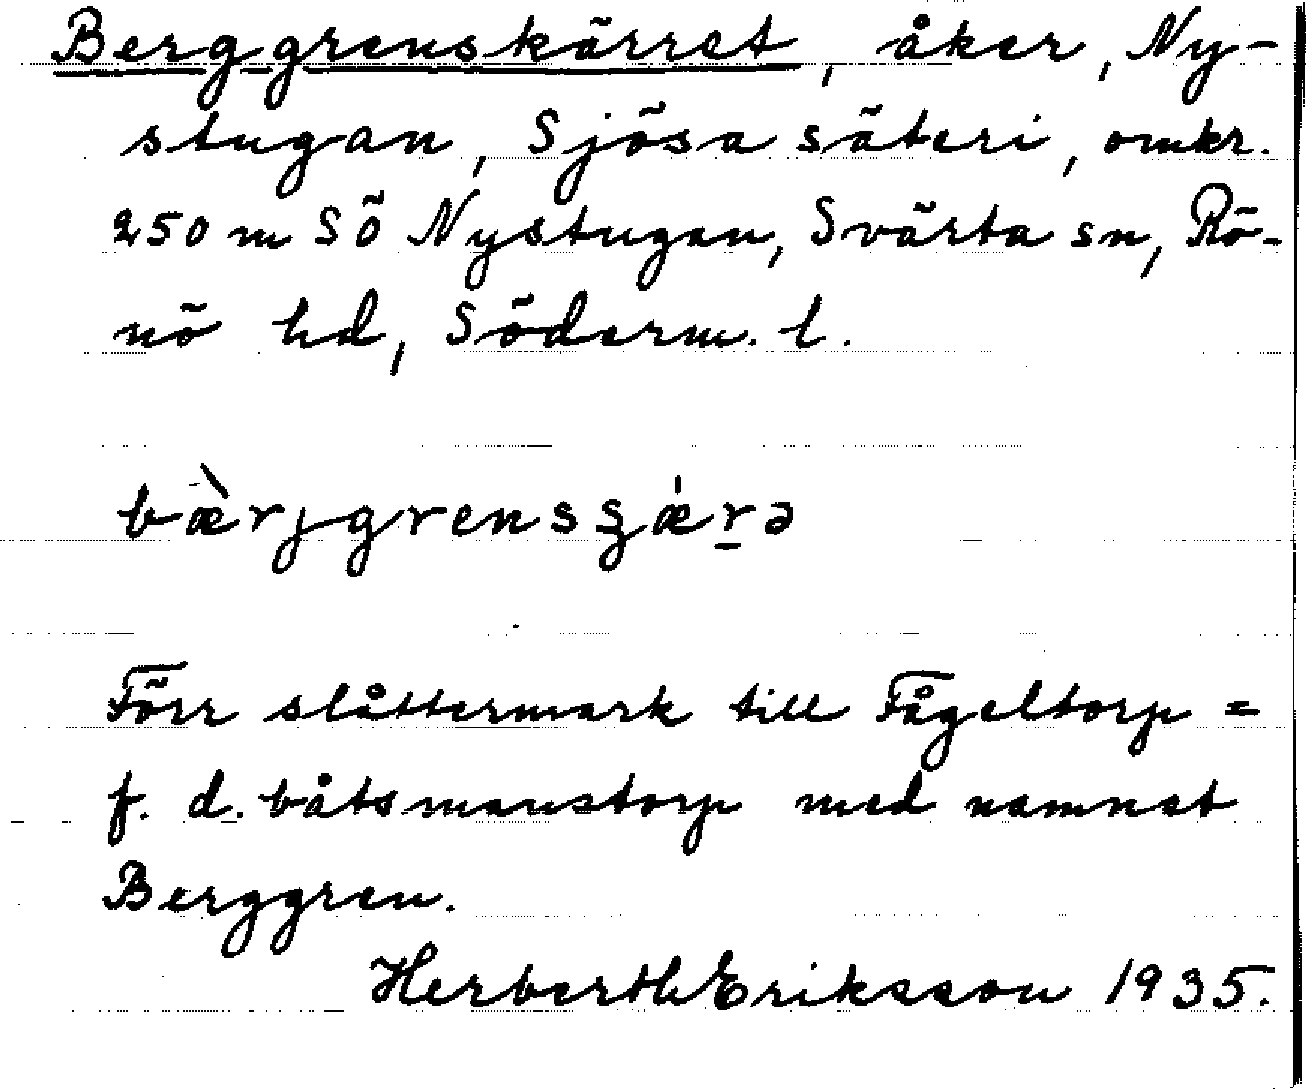 Berggrenskärret, åker, Ny-
stugan, Sjösa säteri, omkr.
250 m SÖ Nystugan, Svärta sn, Rö-
nö hd, Söderm. l.
bæ̀rjgrensʂǽr̲ə
Förr slåttermark till Fågeltorp =
f. d. båtsmanstorp med namnet
Berggren.
Herberth Eriksson 1935.